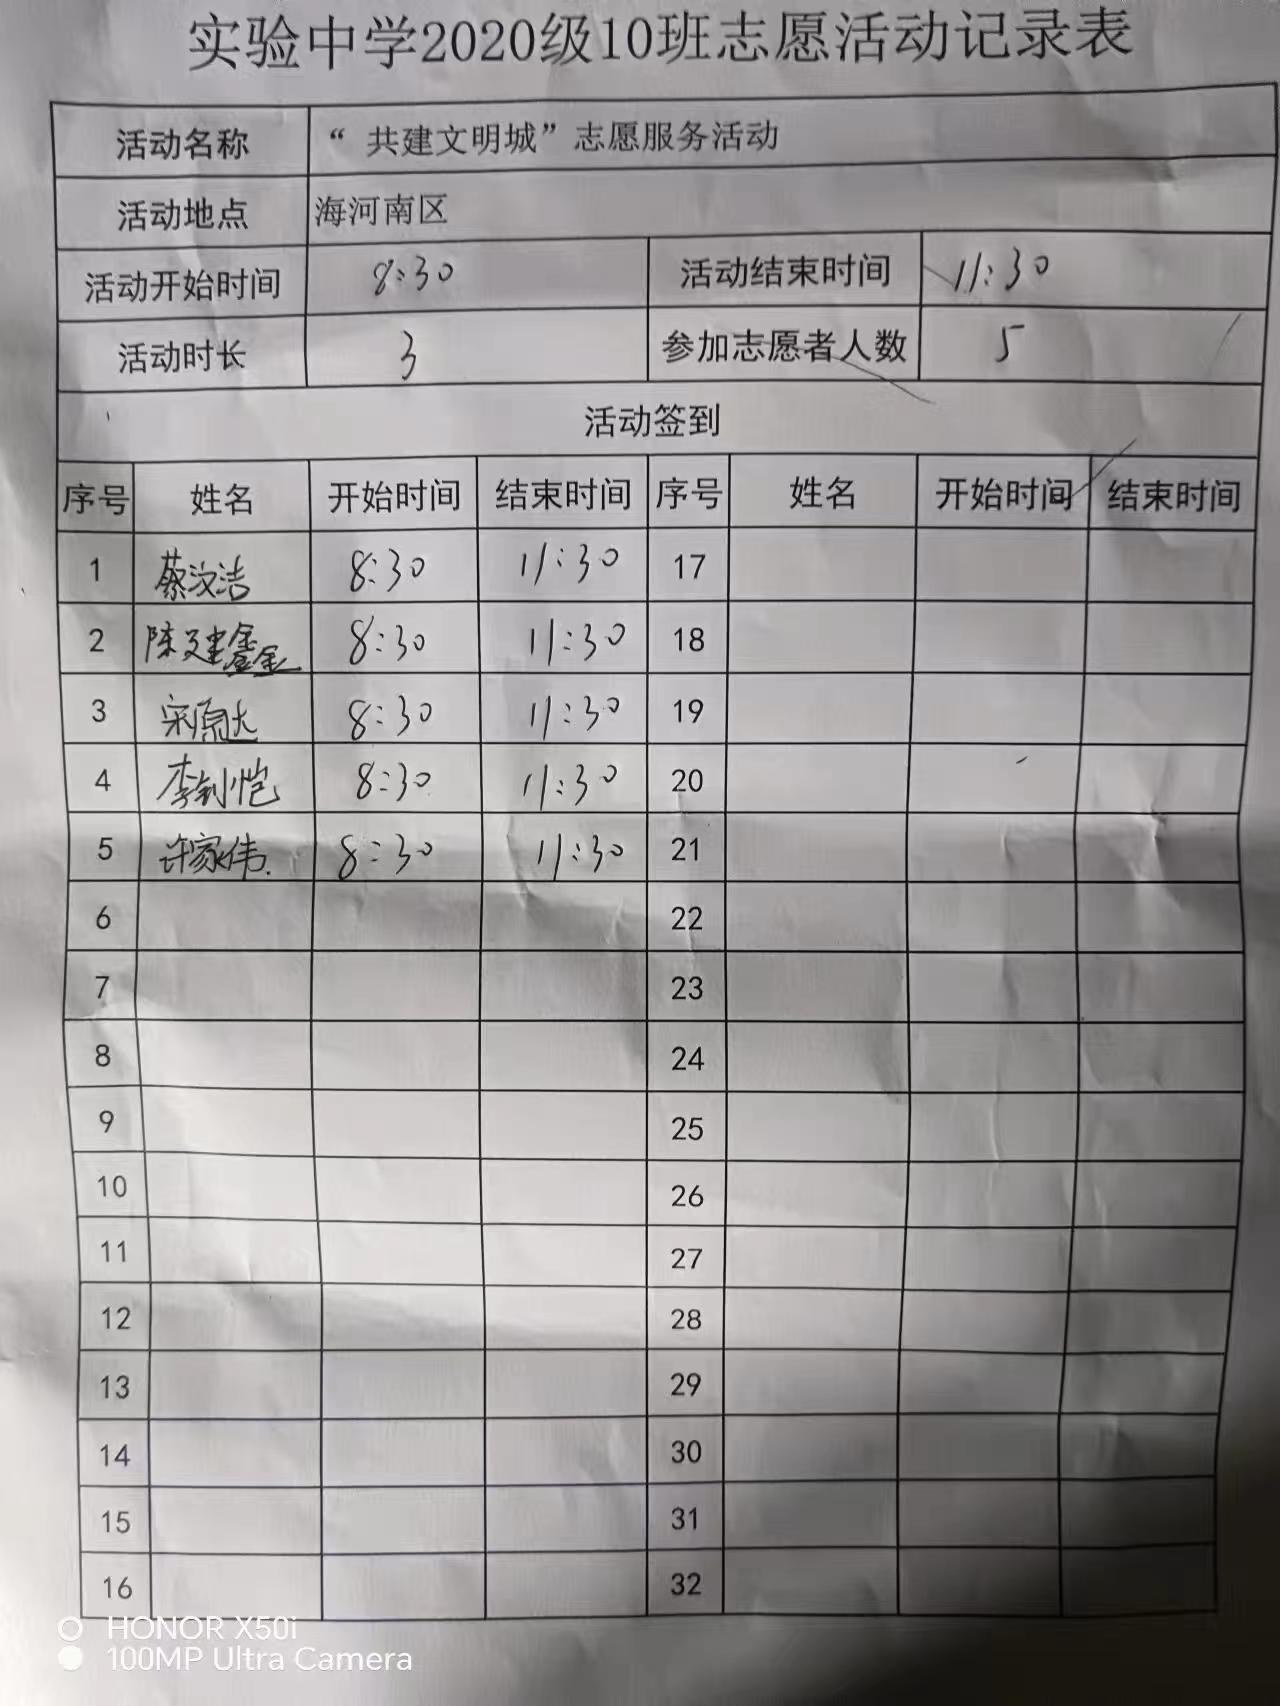 实验中学2020级10班志愿活动记录表
活动名称 “ 共建文明城”志愿服务活动
活动地点 海河南区
活动开始时间 8:30 活动结束时间 11:30
活动时长 3 参加志愿者人数 5
活动签到
序号 姓名 开始时间 结束时间 序号 姓名 开始时间 结束时间
1 蔡汶洁 8:30 11:30 17
2 陈建鑫 8:30 11:30 18
3 宋原达 8:30 11:30 19
4 李钊恺 8:30 11:30 20
5 许家伟 8:30 11:30 21
6 22
7 23
8 24
9 25
10 26
11 27
12 28
13 29
14 30
15 31
16 32
HONOR X50i
100MP Ultra Camera